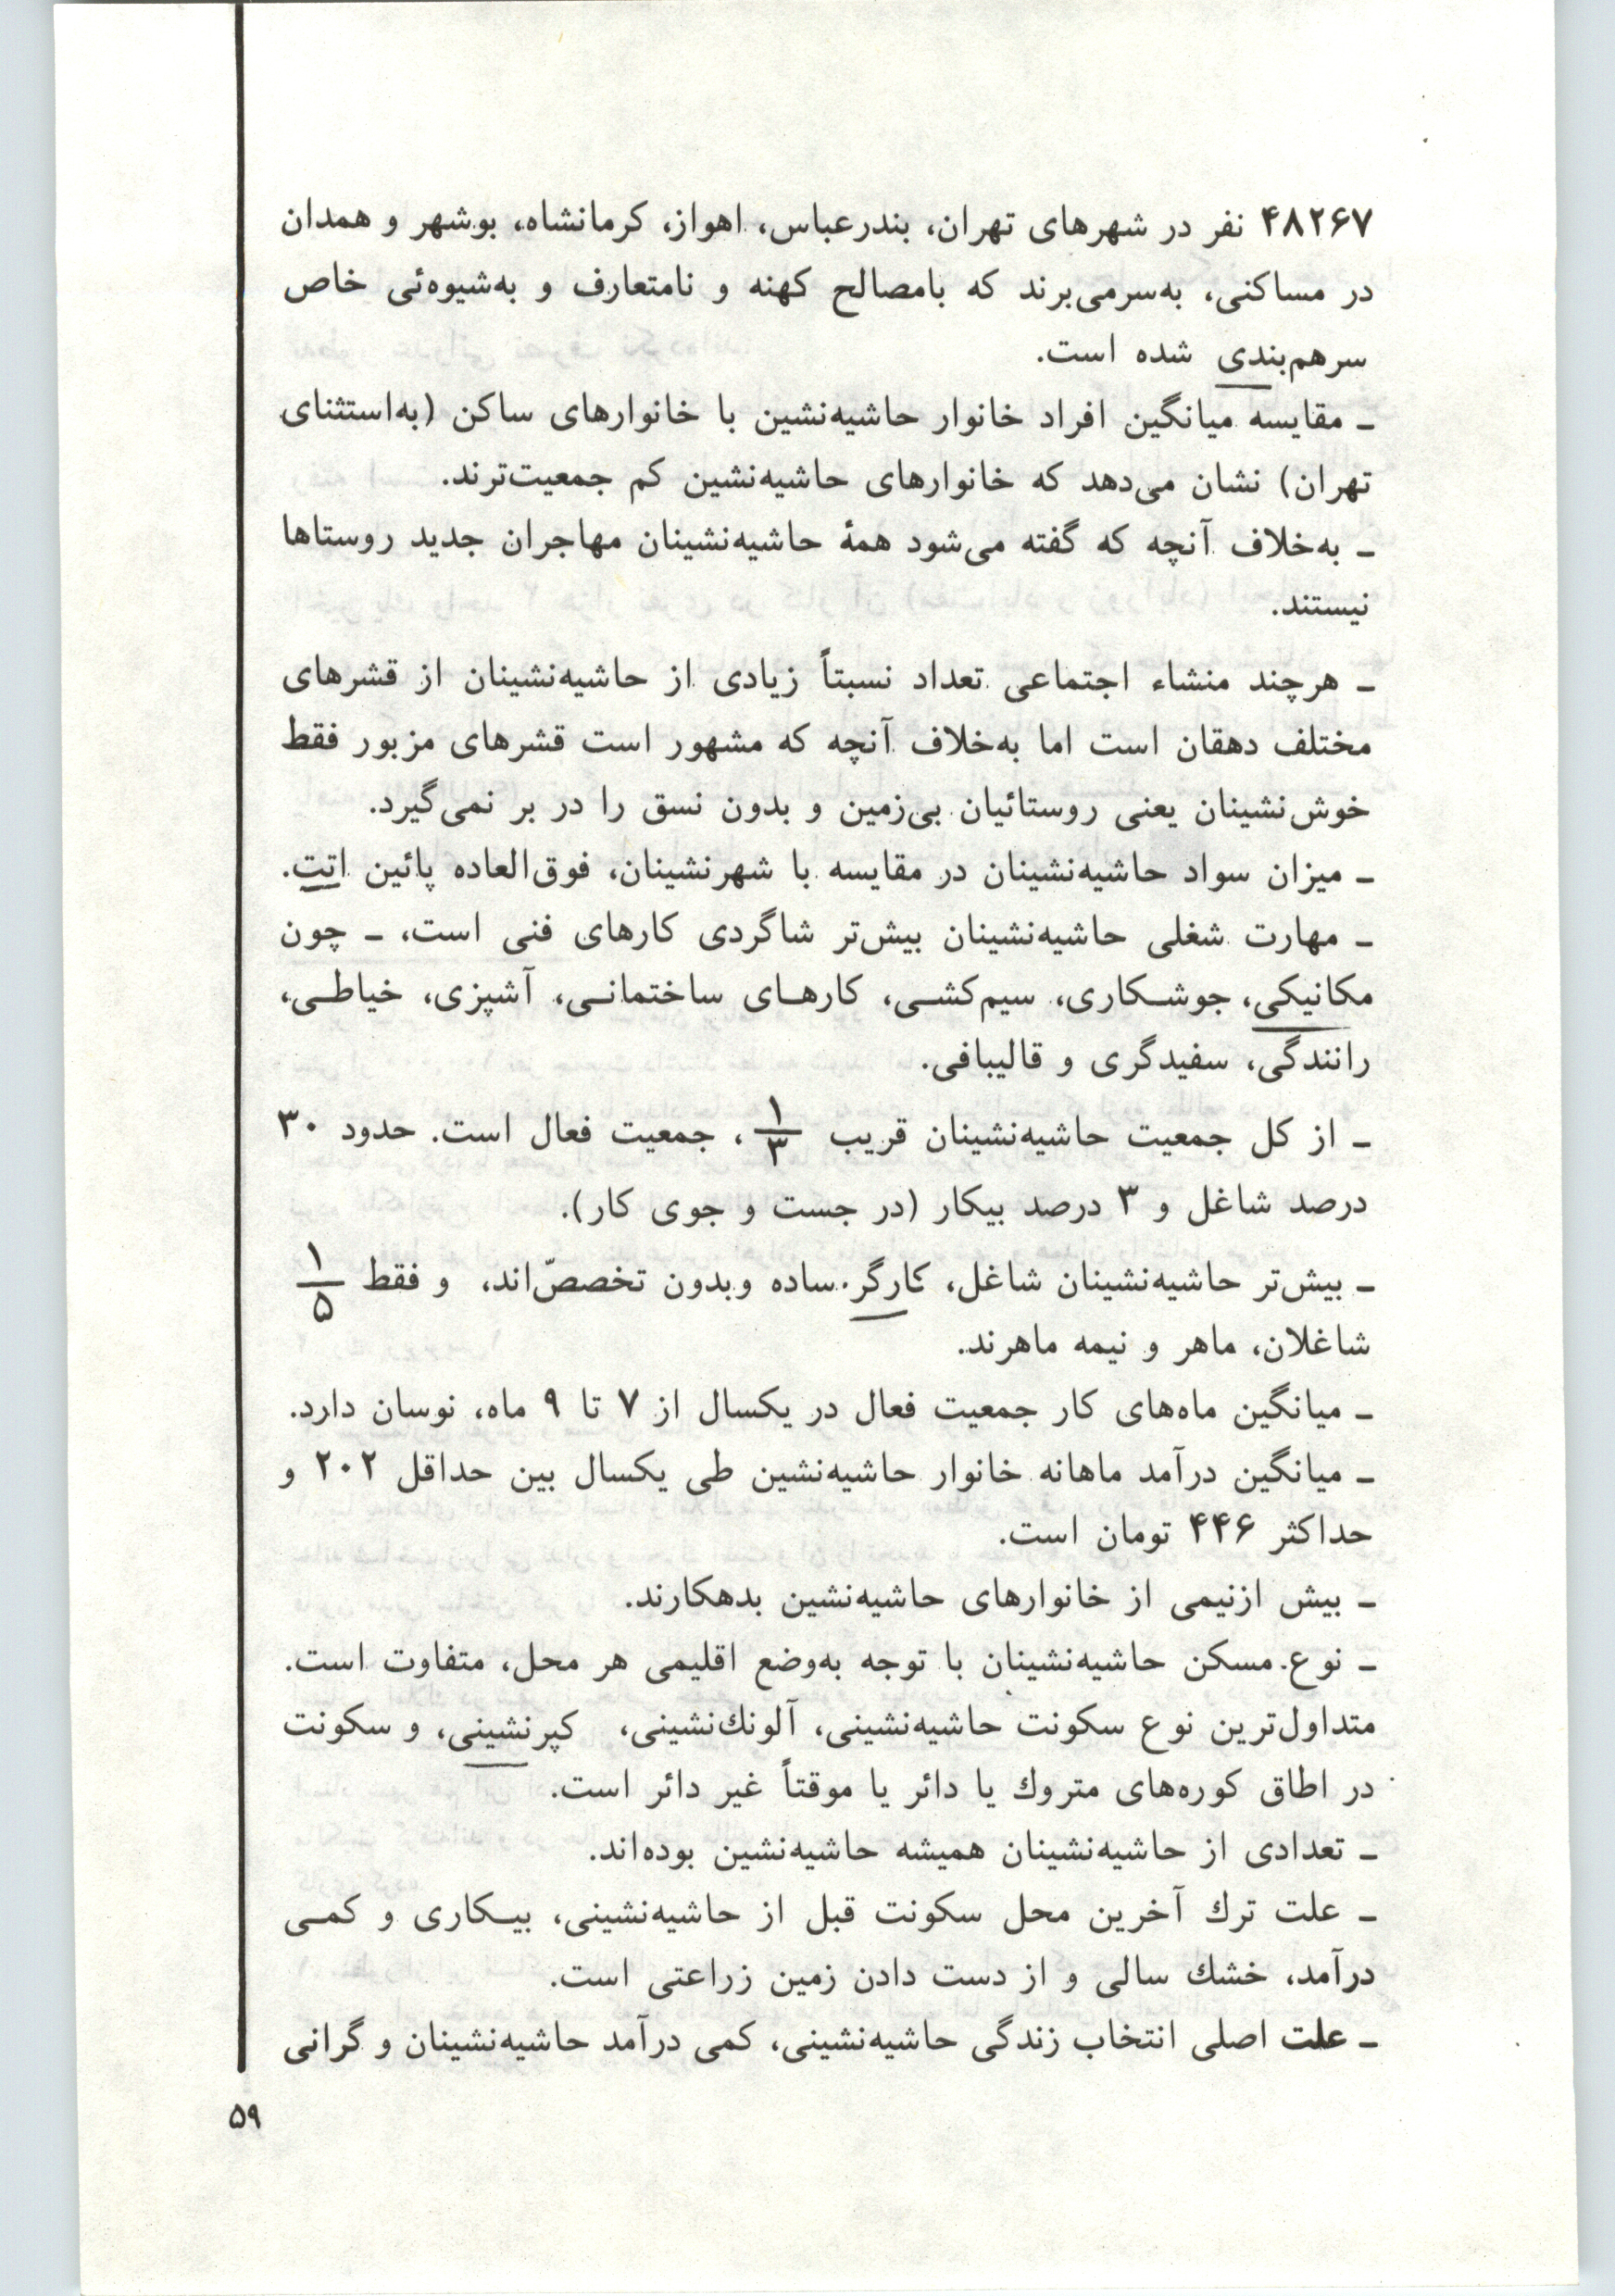 ۴۸۲۶۷ نفر در شهرهای تهران، بندرعباس، اهواز، کرمانشاه، بوشهر و همدان
در مساکنی، به‌سرمی‌برند که بامصالح کهنه و نامتعارف و به‌شیوه‌ئی خاص
سرهم‌بندی شده است.
ـ مقایسه میانگین افراد خانوار حاشیه‌نشین با خانوارهای ساکن (به‌استثنای
تهران) نشان می‌دهد که خانوارهای حاشیه‌نشین کم جمعیت‌ترند.
ـ به‌خلاف آنچه که گفته می‌شود همهٔ حاشیه‌نشینان مهاجران جدید روستاها
نیستند.
ـ هرچند منشاء اجتماعی تعداد نسبتاً زیادی از حاشیه‌نشینان از قشرهای
مختلف دهقان است اما به‌خلاف آنچه که مشهور است قشرهای مزبور فقط
خوش‌نشینان یعنی روستائیان بی‌زمین و بدون نسق را در بر نمی‌گیرد.
ـ میزان سواد حاشیه‌نشینان در مقایسه با شهرنشینان، فوق‌العاده پائین اتت.
ـ مهارت شغلی حاشیه‌نشینان بیش‌تر شاگردی کارهای فنی است، ـ چون
مکانیکی، جوشـکاری، سیم‌کشـی، کارهـای ساختمانـی، آشپزی، خیاطـی،
رانندگی، سفیدگری و قالیبافی.
ـ از کل جمعیت حاشیه‌نشینان قریب ۱/۳، جمعیت فعال است. حدود ۳۰
درصد شاغل و ۳ درصد بیکار (در جست و جوی کار).
ـ بیش‌تر حاشیه‌نشینان شاغل، کارگر ساده وبدون تخصصّ‌اند، و فقط ۱/۵
شاغلان، ماهر و نیمه ماهرند.
ـ میانگین ماه‌های کار جمعیت فعال در یکسال از ۷ تا ۹ ماه، نوسان دارد.
ـ میانگین درآمد ماهانه خانوار حاشیه‌نشین طی یکسال بین حداقل ۲۰۲ و
حداکثر ۴۴۶ تومان است.
ـ بیش ازنیمی از خانوارهای حاشیه‌نشین بدهکارند.
ـ نوع مسکن حاشیه‌نشینان با توجه به‌وضع اقلیمی هر محل، متفاوت است.
متداول‌ترین نوع سکونت حاشیه‌نشینی، آلونك‌نشینی، کپرنشینی، و سکونت
در اطاق کوره‌های متروك یا دائر یا موقتاً غیر دائر است.
ـ تعدادی از حاشیه‌نشینان همیشه حاشیه‌نشین بوده‌اند.
ـ علت ترك آخرین محل سکونت قبل از حاشیه‌نشینی، بیـکاری و کمـی
درآمد، خشك سالی و از دست دادن زمین زراعتی است.
ـ علت اصلی انتخاب زندگی حاشیه‌نشینی، کمی درآمد حاشیه‌نشینان و گرانی
۵۹